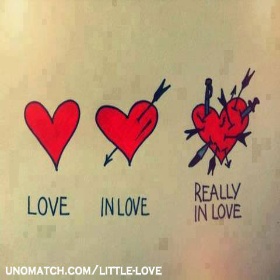 LOVE
IN LOVE
REALLY
IN LOVE
UNOMATCH.COM/LITTLE-LOVE